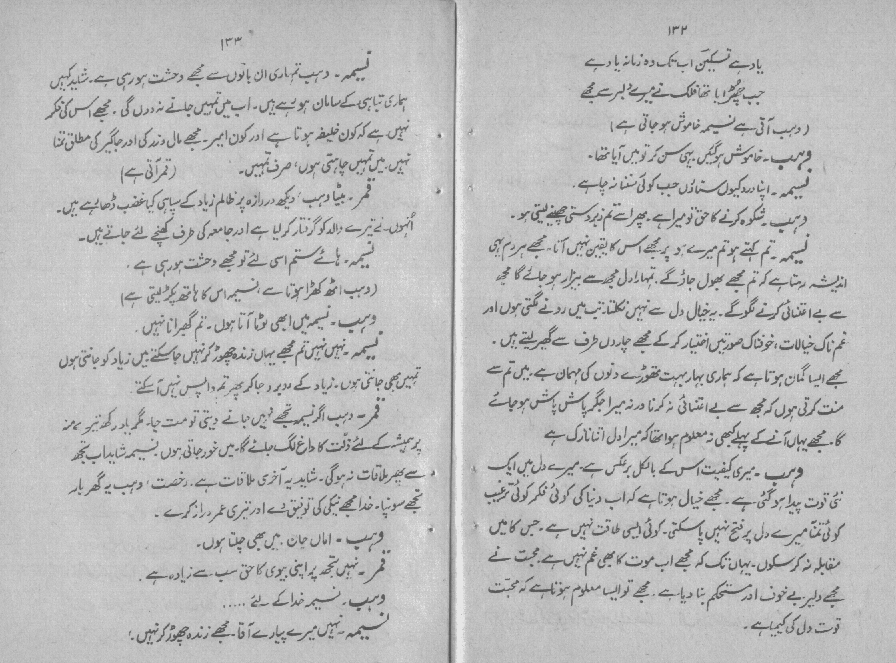 ۱۳۲
یاد ہے تسکین اب تک وہ زمانہ یاد ہے
جب چھڑایا تھا فلک نے میرے دلبر سے مجھے
(وہب آتی ہے نسیمہ خاموش ہو جاتی ہے)
وہب۔ خاموش ہو گئیں یہی سن کر تو میں آیا تھا۔
نسیمہ۔ اپنا درد کیوں سناؤں جب کوئی سننا نہ چاہے۔
وہب۔ شکوہ کرنے کا حق تو میرا ہے۔ پھر اسے تم زبردستی چھینے لیتی ہو۔
نسیمہ۔ تم کہتے ہو تم میرے ہو پر مجھے اس کا یقین نہیں آتا۔ مجھے ہر دم یہی
اندیشہ رہتا ہے کہ تم مجھے بھول جاؤ گے۔ تمہارا دل مجھ سے بیزار ہو جائے گا مجھ
سے بے اعتنائی کرنے لگو گے۔ یہ خیال دل سے نہیں نکلتا تب میں رونے لگتی ہوں اور
غم ناک خیالات، خوفناک صورتیں اختیار کر کے مجھے چاروں طرف سے گھیر لیتے ہیں۔
مجھے ایسا گمان ہوتا ہے کہ ہماری بہار بہت تھوڑے دنوں کی مہمان ہے۔ میں تم سے
منت کرتی ہوں کہ مجھ سے بے اعتنائی نہ کرنا ورنہ میرا جگر پاش پاش ہو جائے
گا۔ مجھے یہاں آنے کے پہلے کبھی نہ معلوم ہوا تھا کہ میرا دل اتنا نازک ہے
وہب۔ میری کیفیت اس کے بالکل برعکس ہے۔ میرے دل میں ایک
نئی قوت پیدا ہو گئی ہے۔ مجھے خیال ہوتا ہے کہ اب دنیا کی کوئی فکر کوئی ترغیب
کوئی میرے دل پر فتح نہیں پا سکتی۔ کوئی ایسی طاقت نہیں ہے۔ جس کا میں
مقابلہ نہ کر سکوں۔ یہاں تک کہ مجھے اب موت کا بھی غم نہیں ہے۔ محبت نے
مجھے دلیر بے خوف اور مستحکم بنا دیا ہے۔ مجھے تو ایسا معلوم ہوتا ہے کہ محبت
قوت دل کی کیمیا ہے۔
۱۳۳
نسیمہ۔ وہب تمہاری ان باتوں سے مجھے وحشت ہو رہی ہے۔ شاید کہیں
ہماری تباہی کے سامان ہو رہے ہیں۔ اب میں تمہیں جانے نہ دوں گی۔ مجھے اس کی فکر
نہیں ہے کہ کون خلیفہ ہوتا ہے اور کون امیر۔ مجھے مال و زر کی اور جاگیر کی مطلق تمنا
نہیں۔ میں تمہیں چاہتی ہوں، صرف تمہیں۔ (قمر آتی ہے)
قمر۔ بیٹا وہب، دیکھ دروازہ پر ظالم زیاد کے سپاہی کیا غضب ڈھا رہے ہیں۔
اُنہوں نے تیرے والد کو گرفتار کر لیا ہے اور جامعہ کی طرف کھینچے لئے جاتے ہیں۔
نسیمہ۔ ہائے ستم اسی لئے تو مجھے وحشت ہو رہی ہے۔
(وہب اٹھ کھڑا ہوتا ہے، نسیمہ اس کا ہاتھ پکڑ لیتی ہے)
وہب۔ نسیمہ میں ابھی لوٹا آتا ہوں۔ تم گھبرانا نہیں۔
نسیمہ۔ نہیں نہیں تم مجھے یہاں زندہ چھوڑ کر نہیں جا سکتے میں زیاد کو جانتی ہوں
تمہیں بھی جانتی ہوں۔ زیاد کے روبرو جا کر پھر تم واپس نہیں آ سکتے
قمر۔ وہب اگر نسیمہ تجھے نہیں جانے دیتی تو مت جا، مگر یاد رکھ تیرے منہ
پر ہمیشہ کے لئے ذلت کا داغ لگ جائے گا۔ میں خود جاتی ہوں۔ نسیمہ شاید اب تجھ
سے پھر ملاقات نہ ہو گی۔ شاید یہ آخری ملاقات ہے۔ رخصت، وہب یہ گھر بار
تجھے سونپا۔ خدا تجھے نیکی کی توفیق دے اور تیری عمر دراز کرے۔
وہب۔ اماں جان۔ میں بھی چلتا ہوں۔
قمر۔ نہیں تجھ پر اپنی بیوی کا حق سب سے زیادہ ہے
وہب۔ نسیمہ خدا کے لئے.....
نسیمہ۔ نہیں میرے پیارے آقا۔ مجھے زندہ چھوڑ کر نہیں۔!